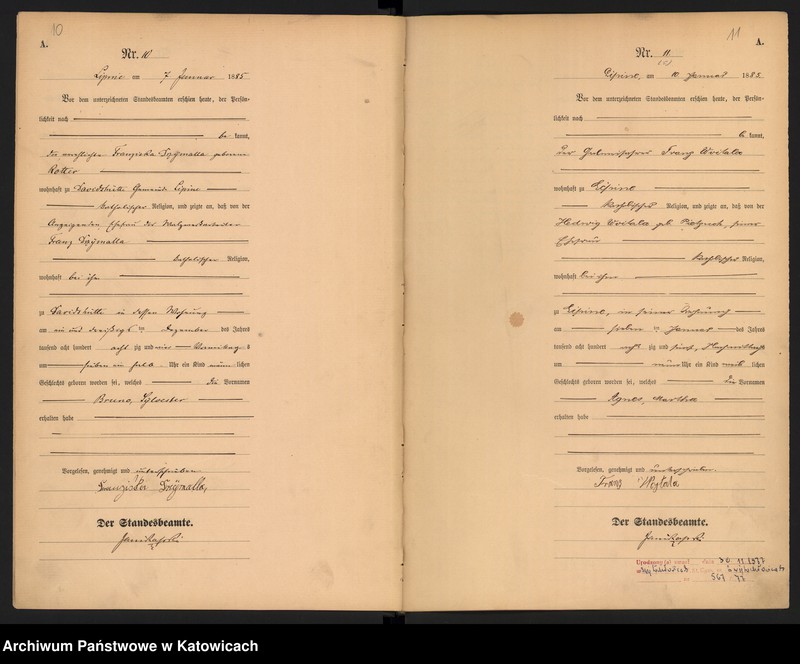 10
A.
Nr. 10
Lipine am 7 Januar 1885
Vor dem unterzeichneten Standesbeamten erschien heute, der Persön-
lichkeit nach
be kannt,
die verehelichte Franziska Szÿmalla geborene
Kotter
wohnhaft zu Davidshütte Gemeinde Lipine
katholischer Religion, und zeigte an, daß von der
Anzeigenden, Ehefrau des
Franz Szÿmalla
katholischer Religion,
wohnhaft bei ihm
zu Davidshütte in dessen Wohnung
am ein und dreißigsten Dezember des Jahres
tausend acht hundert acht zig und vier Vormittags
um sieben ein halb Uhr ein Kind männ lichen
Geschlechts geboren worden sei, welches die Vornamen
Bruno, Sylvester
erhalten habe
Vorgelesen, genehmigt und unterschrieben
Franziska Szÿmalla,
Der Standesbeamte.
11
A.
Nr. 11
Lipine, am 10 Januar 1885
Vor dem unterzeichneten Standesbeamten erschien heute, der Persön-
lichkeit nach
be kannt,
der Franz
wohnhaft zu Lipine
katholischer Religion, und zeigte an, daß von der
Hedwig geb. seiner
Ehefrau
katholischer Religion,
wohnhaft bei ihm
zu Lipine, in seiner Wohnung
am sieben ten Januar des Jahres
tausend acht hundert acht zig und fünf, Nachmittags
um neun Uhr ein Kind weib lichen
Geschlechts geboren worden sei, welches die Vornamen
Agnes, Martha
erhalten habe
Vorgelesen, genehmigt und unterschrieben
Franz
Der Standesbeamte.
30.11.1977
567 77
Archiwum Państwowe w Katowicach